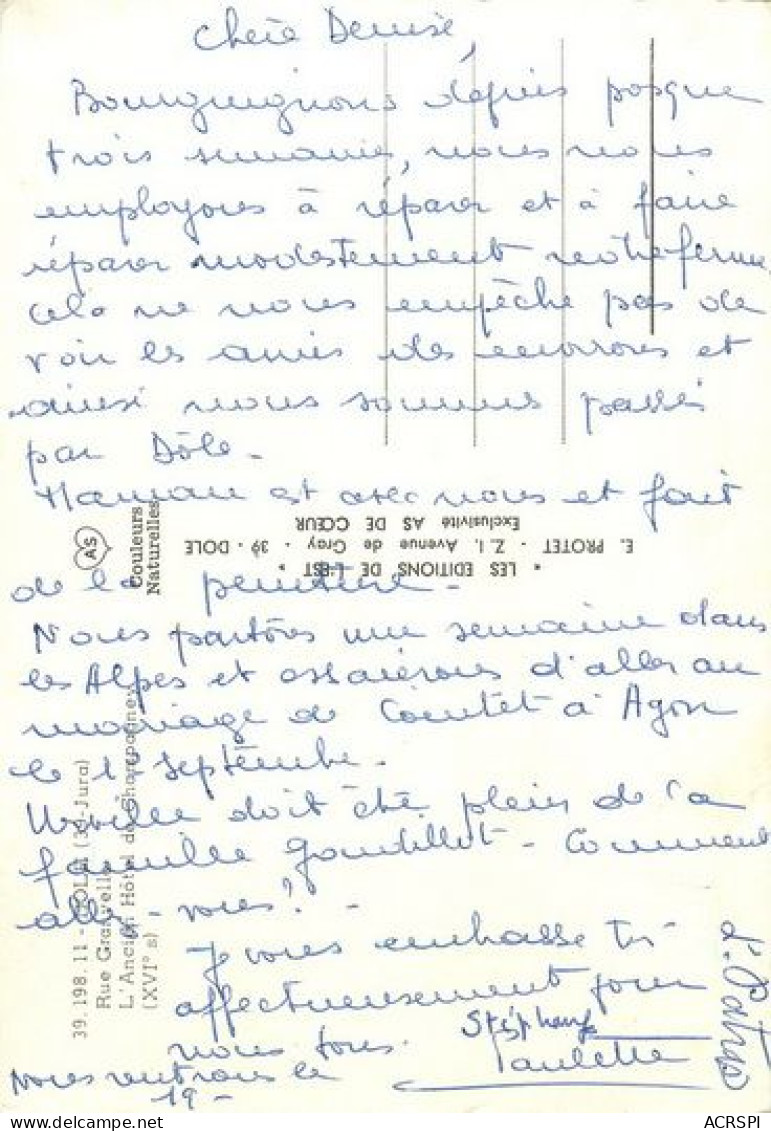 Chère Denise,
Bourguignons depuis presque
trois semaines, nous nous
employons à réparer et à faire
réparer modestement notre ferme.
Cela ne nous empêche pas de
voir les amis des environs et
ainsi nous sommes passés
par Dôle -
Maman est avec nous et fait
de la peinture -
Nous partons une semaine dans
les Alpes et essaierons d'aller au
mariage de à Agon
le 1er septembre.
doit être plein de la
famille Gandillot - Comment
allez-vous? -
Je vous embrasse très
affectueusement pour
nous tous.
Stéphane
Paulette
Nous rentrons le
19 -
AS
Couleurs
Naturelles
* LES EDITIONS DE L'EST *
E. PROTET - Z. I. Avenue de Gray - 39 - DOLE
Exclusivité AS DE CŒUR
39.198.11 - DOLE (39-Jura)
Rue Granvelle
L'Ancien Hôtel de Champagney
(XVI° s)
ACRSPI